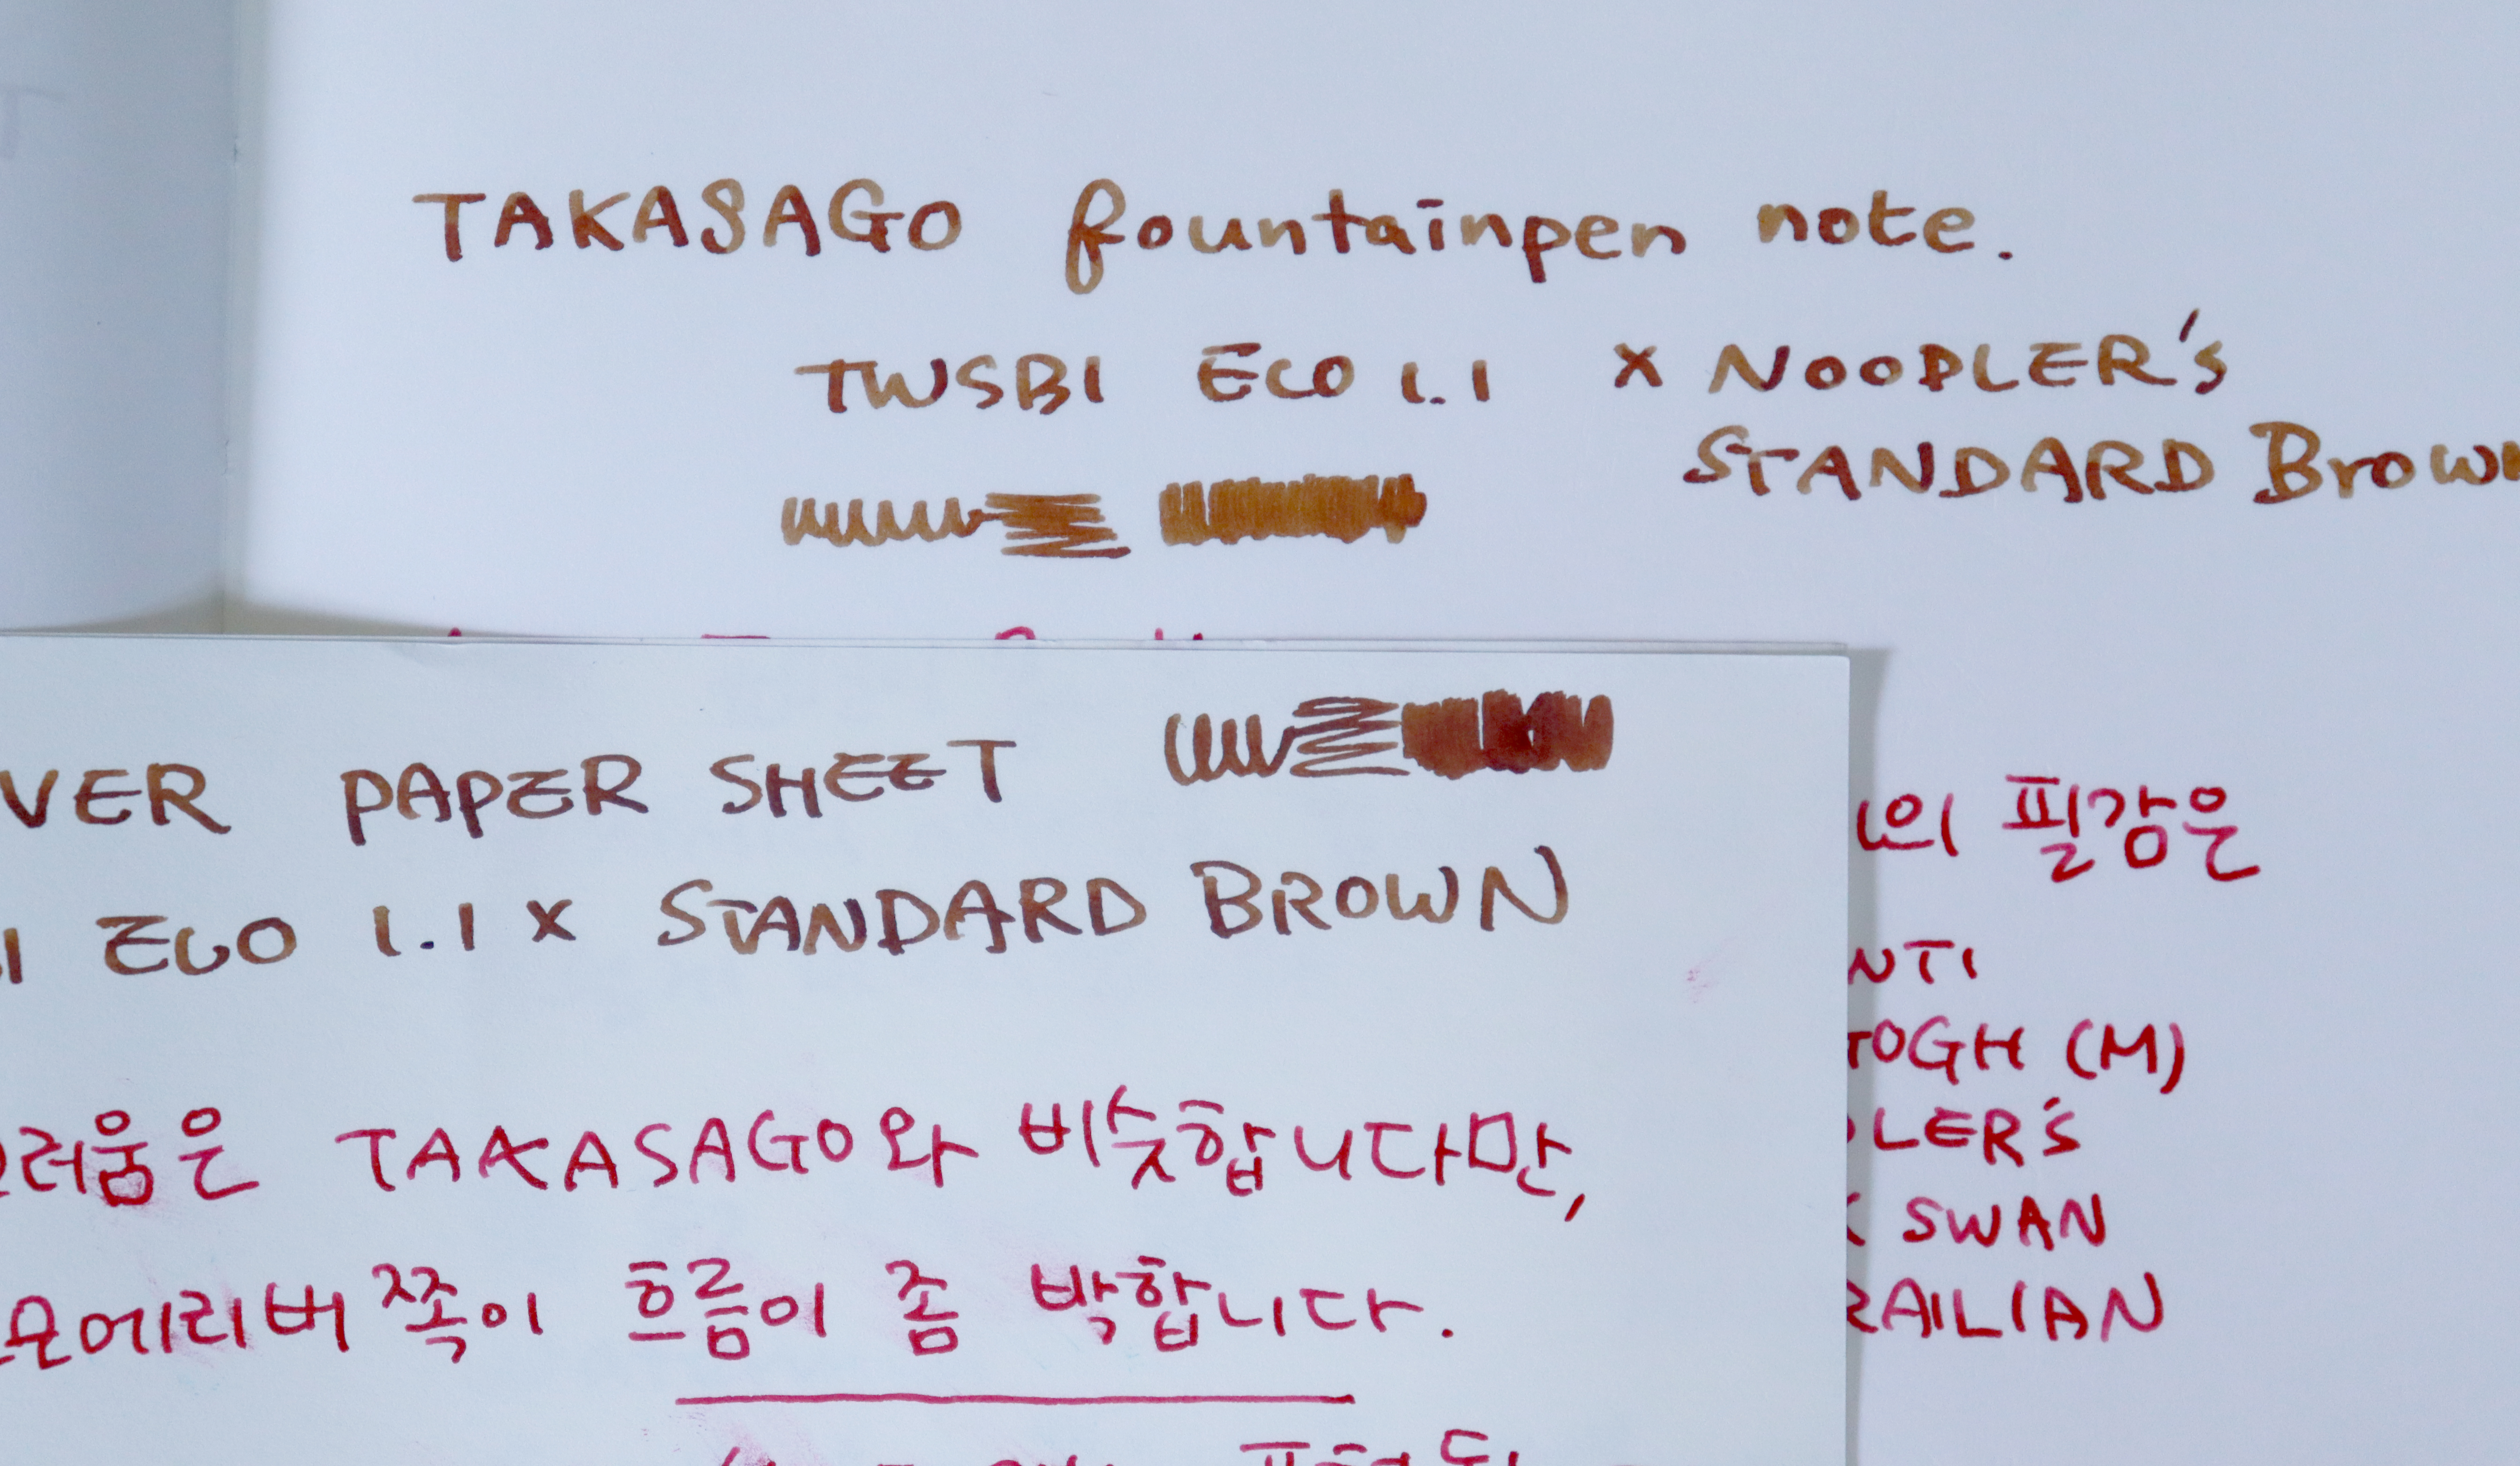 TAKASAGO fountainpen note.
TWSBI ECO 1.1 x NOODLER's
STANDARD Brown
VER PAPER SHEET
I ECO 1.1 x STANDARD BROWN
러움은 TAKASAGO와 비슷합니다만,
모에리버쪽이 흐름이 좀 박합니다.
의 필감은
NTI
GOGH (M)
LER's
SWAN
RAILIAN